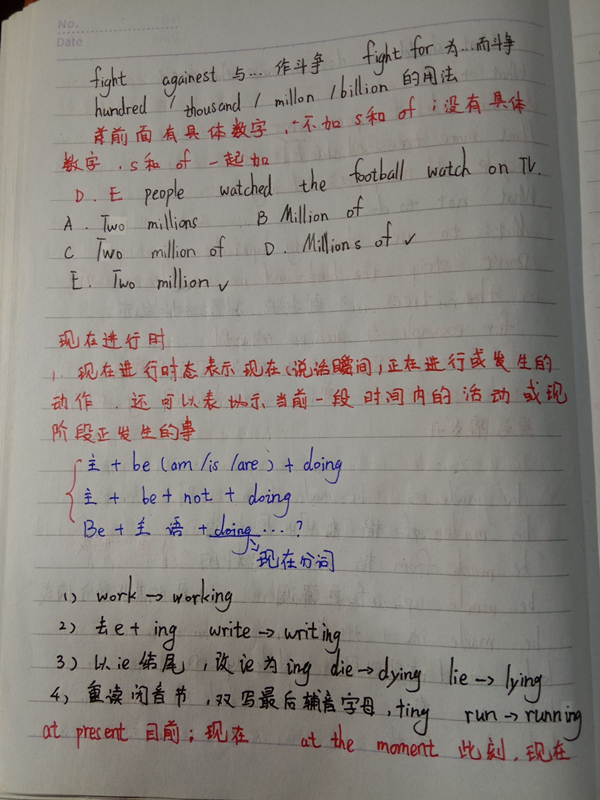 No.
Date
fight againest 与…作斗争 fight for 为…而斗争
hundred / thousand / millon / billion 的用法
前面有具体数字，不加 s和 of；没有具体
数字，s和 of 一起加
D. E people watched the football watch on TV.
A. Two millions B Million of
C Two million of D. Millions of ✓
E. Two million ✓
现在进行时
1. 现在进行时态表示现在(说话瞬间)正在进行或发生的
动作．还可以表示当前一段时间内的活动或现
阶段正发生的事
主 + be (am /is /are) + doing
主 + be + not + doing
Be + 主语 + doing …?
现在分词
1) work → working
2) 去e + ing write → writing
3) 以ie结尾，改ie为ing die → dying lie → lying
4) 重读闭音节，双写最后辅音字母，+ing run → running
at present 目前；现在 at the moment 此刻，现在